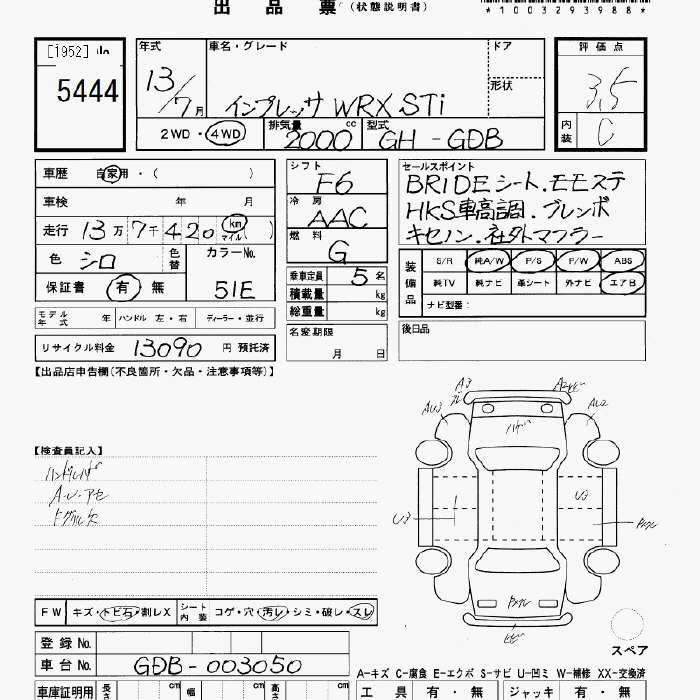 出品票(状態説明書)
*1003293988*
[1952]
5444
年式 車名・グレード ドア 評価点
13/7月 インプレッサ WRX STi 形状 3.5
2WD・4WD 排気量 2000 cc 型式 GH - GDB 内装 C
車歴 自家用・( )
車検 年 月
走行 13万7千420 km マイル ( )
色 シロ 色替 カラーNo.
保証書 有 無 51E
シフト F6
冷房 AAC
燃料 G
乗車定員 5 名
積載量 kg
総重量 kg
セールスポイント
BRIDEシート.モモステ
HKS車高調.ブレンボ
キセノン.社外マフラー
装備品 S/R 純A/W P/S P/W ABS
純TV 純ナビ 革シート 外ナビ エアB
ナビ型番:
モデル年式 年 ハンドル 左・右 ディーラー・並行
名変期限 月 日
後日品
リサイクル料金 13090 円 預託済
【出品店申告欄(不良箇所・欠品・注意事項等)】
A3
AU3
AU2
【検査員記入】
A・U・アセ
U3
U3
FW キズ・トビ石・割レX シート内装 コゲ・穴・汚レ・シミ・破レ・スレ
登録No.
車台No. GDB-003050
スペア
A-キズ C-腐食 E-エクボ S-サビ U-凹ミ W-補修 XX-交換済
車庫証明用 長さ cm 幅 cm 高さ cm 工具 有・無 ジャッキ 有・無